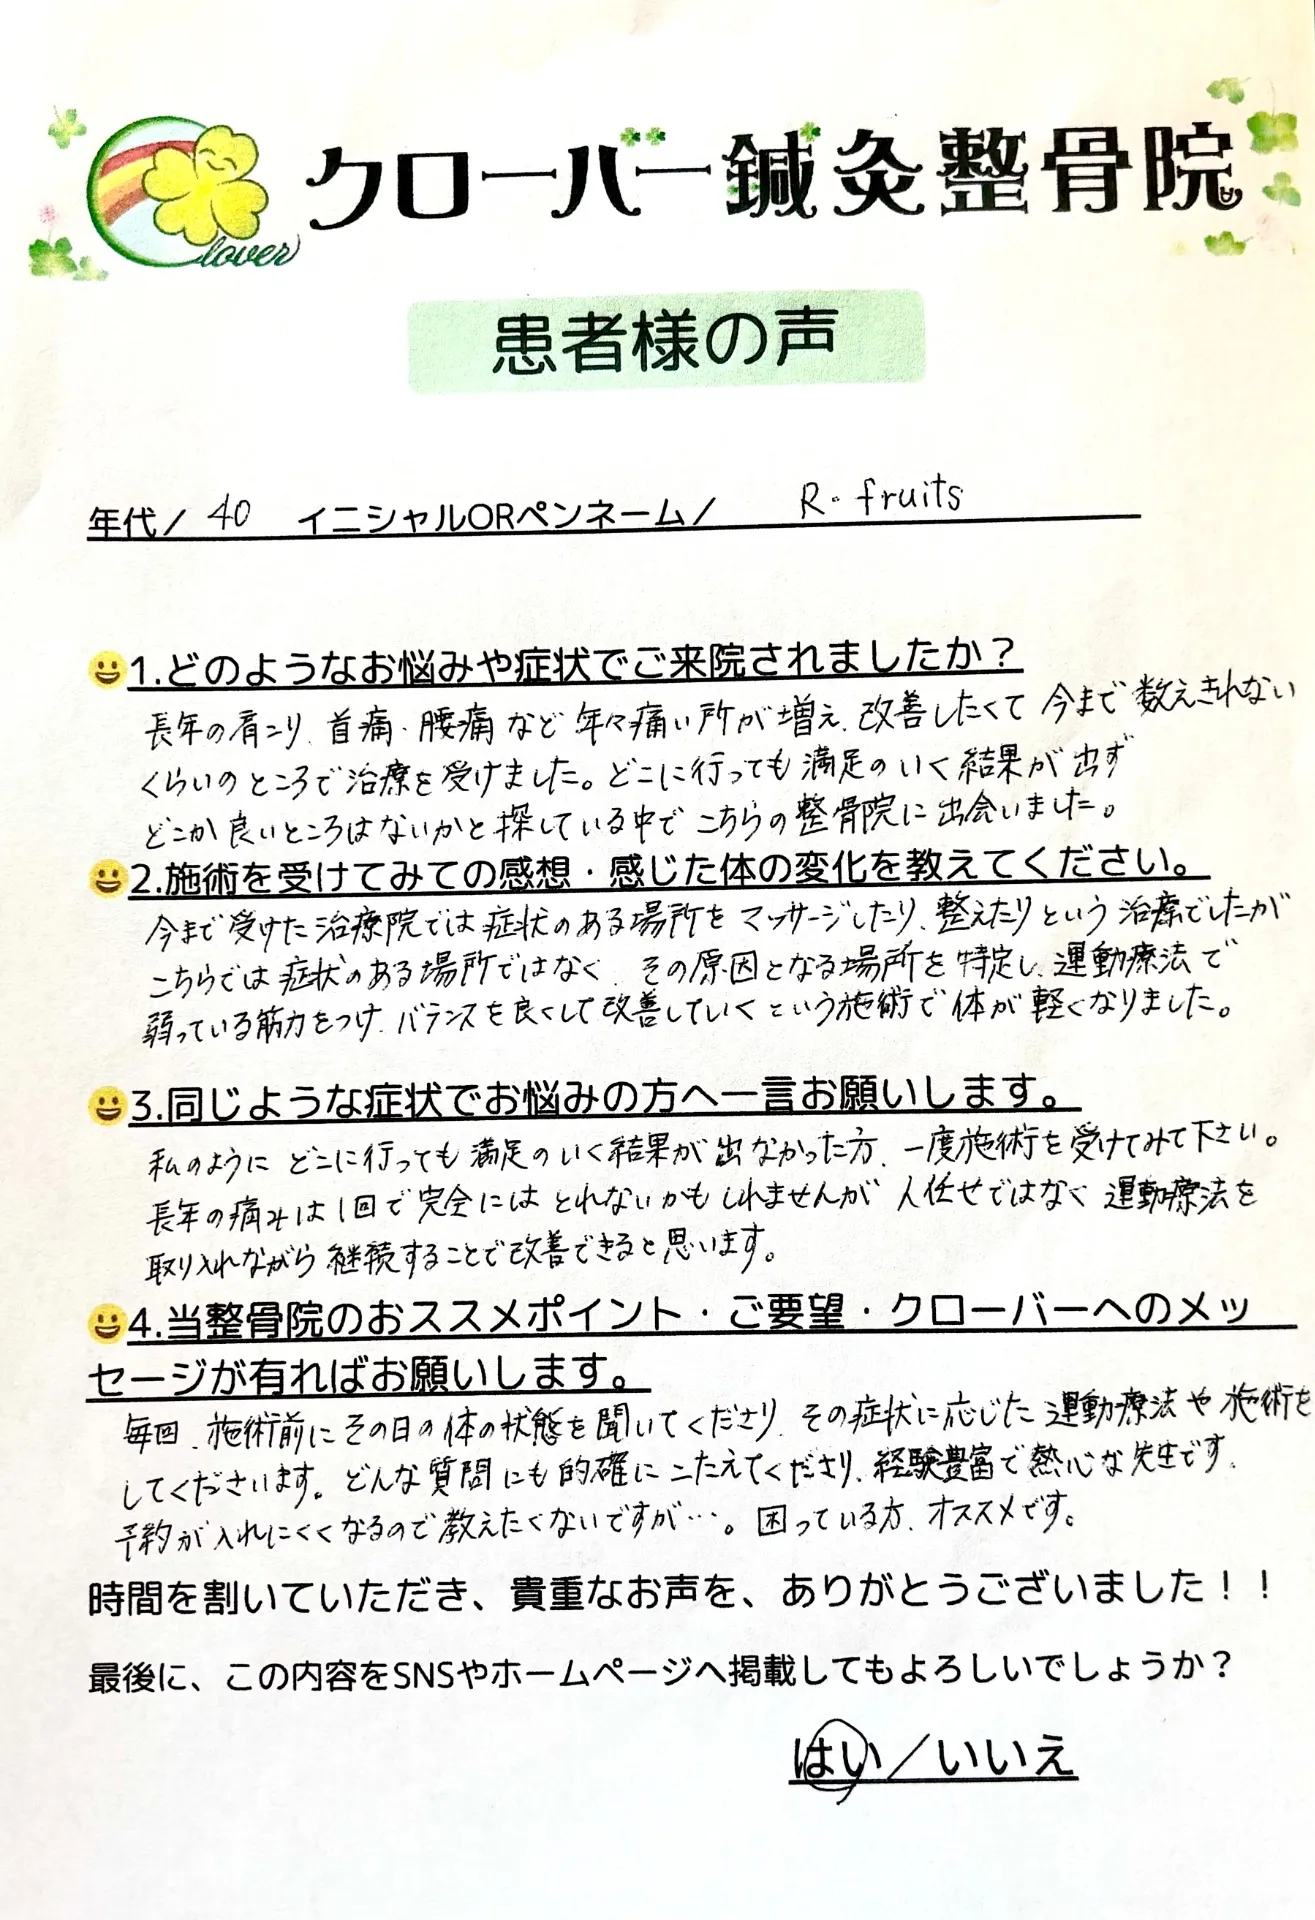 クローバー鍼灸整骨院
Clover
患者様の声
年代/ 40 イニシャルORペンネーム/ R・fruits
1.どのようなお悩みや症状でご来院されましたか？
長年の肩こり、首痛・腰痛など年々痛い所が増え、改善したくて今まで数えきれない
くらいのところで治療を受けました。どこに行っても満足のいく結果が出ず
どこか良いところはないかと探している中でこちらの整骨院に出会いました。
2.施術を受けてみての感想・感じた体の変化を教えてください。
今まで受けた治療院では症状のある場所をマッサージしたり、整えたりという治療でしたが
こちらでは症状のある場所ではなく、その原因となる場所を特定し、運動療法で
弱っている筋力をつけ、バランスを良くして改善していくという施術で体が軽くなりました。
3.同じような症状でお悩みの方へ一言お願いします。
私のようにどこに行っても満足のいく結果が出なかった方、一度施術を受けてみて下さい。
長年の痛みは1回で完全にはとれないかもしれませんが人任せではなく運動療法を
取り入れながら継続することで改善できると思います。
4.当整骨院のおススメポイント・ご要望・クローバーへのメッ
セージが有ればお願いします。
毎回、施術前にその日の体の状態を聞いてくださり、その症状に応じた運動療法や施術を
してくださいます。どんな質問にも的確にこたえてくださり、経験豊富で熱心な先生です。
予約が入れにくくなるので教えたくないですが…。困っている方、オススメです。
時間を割いていただき、貴重なお声を、ありがとうございました！！
最後に、この内容をSNSやホームページへ掲載してもよろしいでしょうか？
はい／いいえ